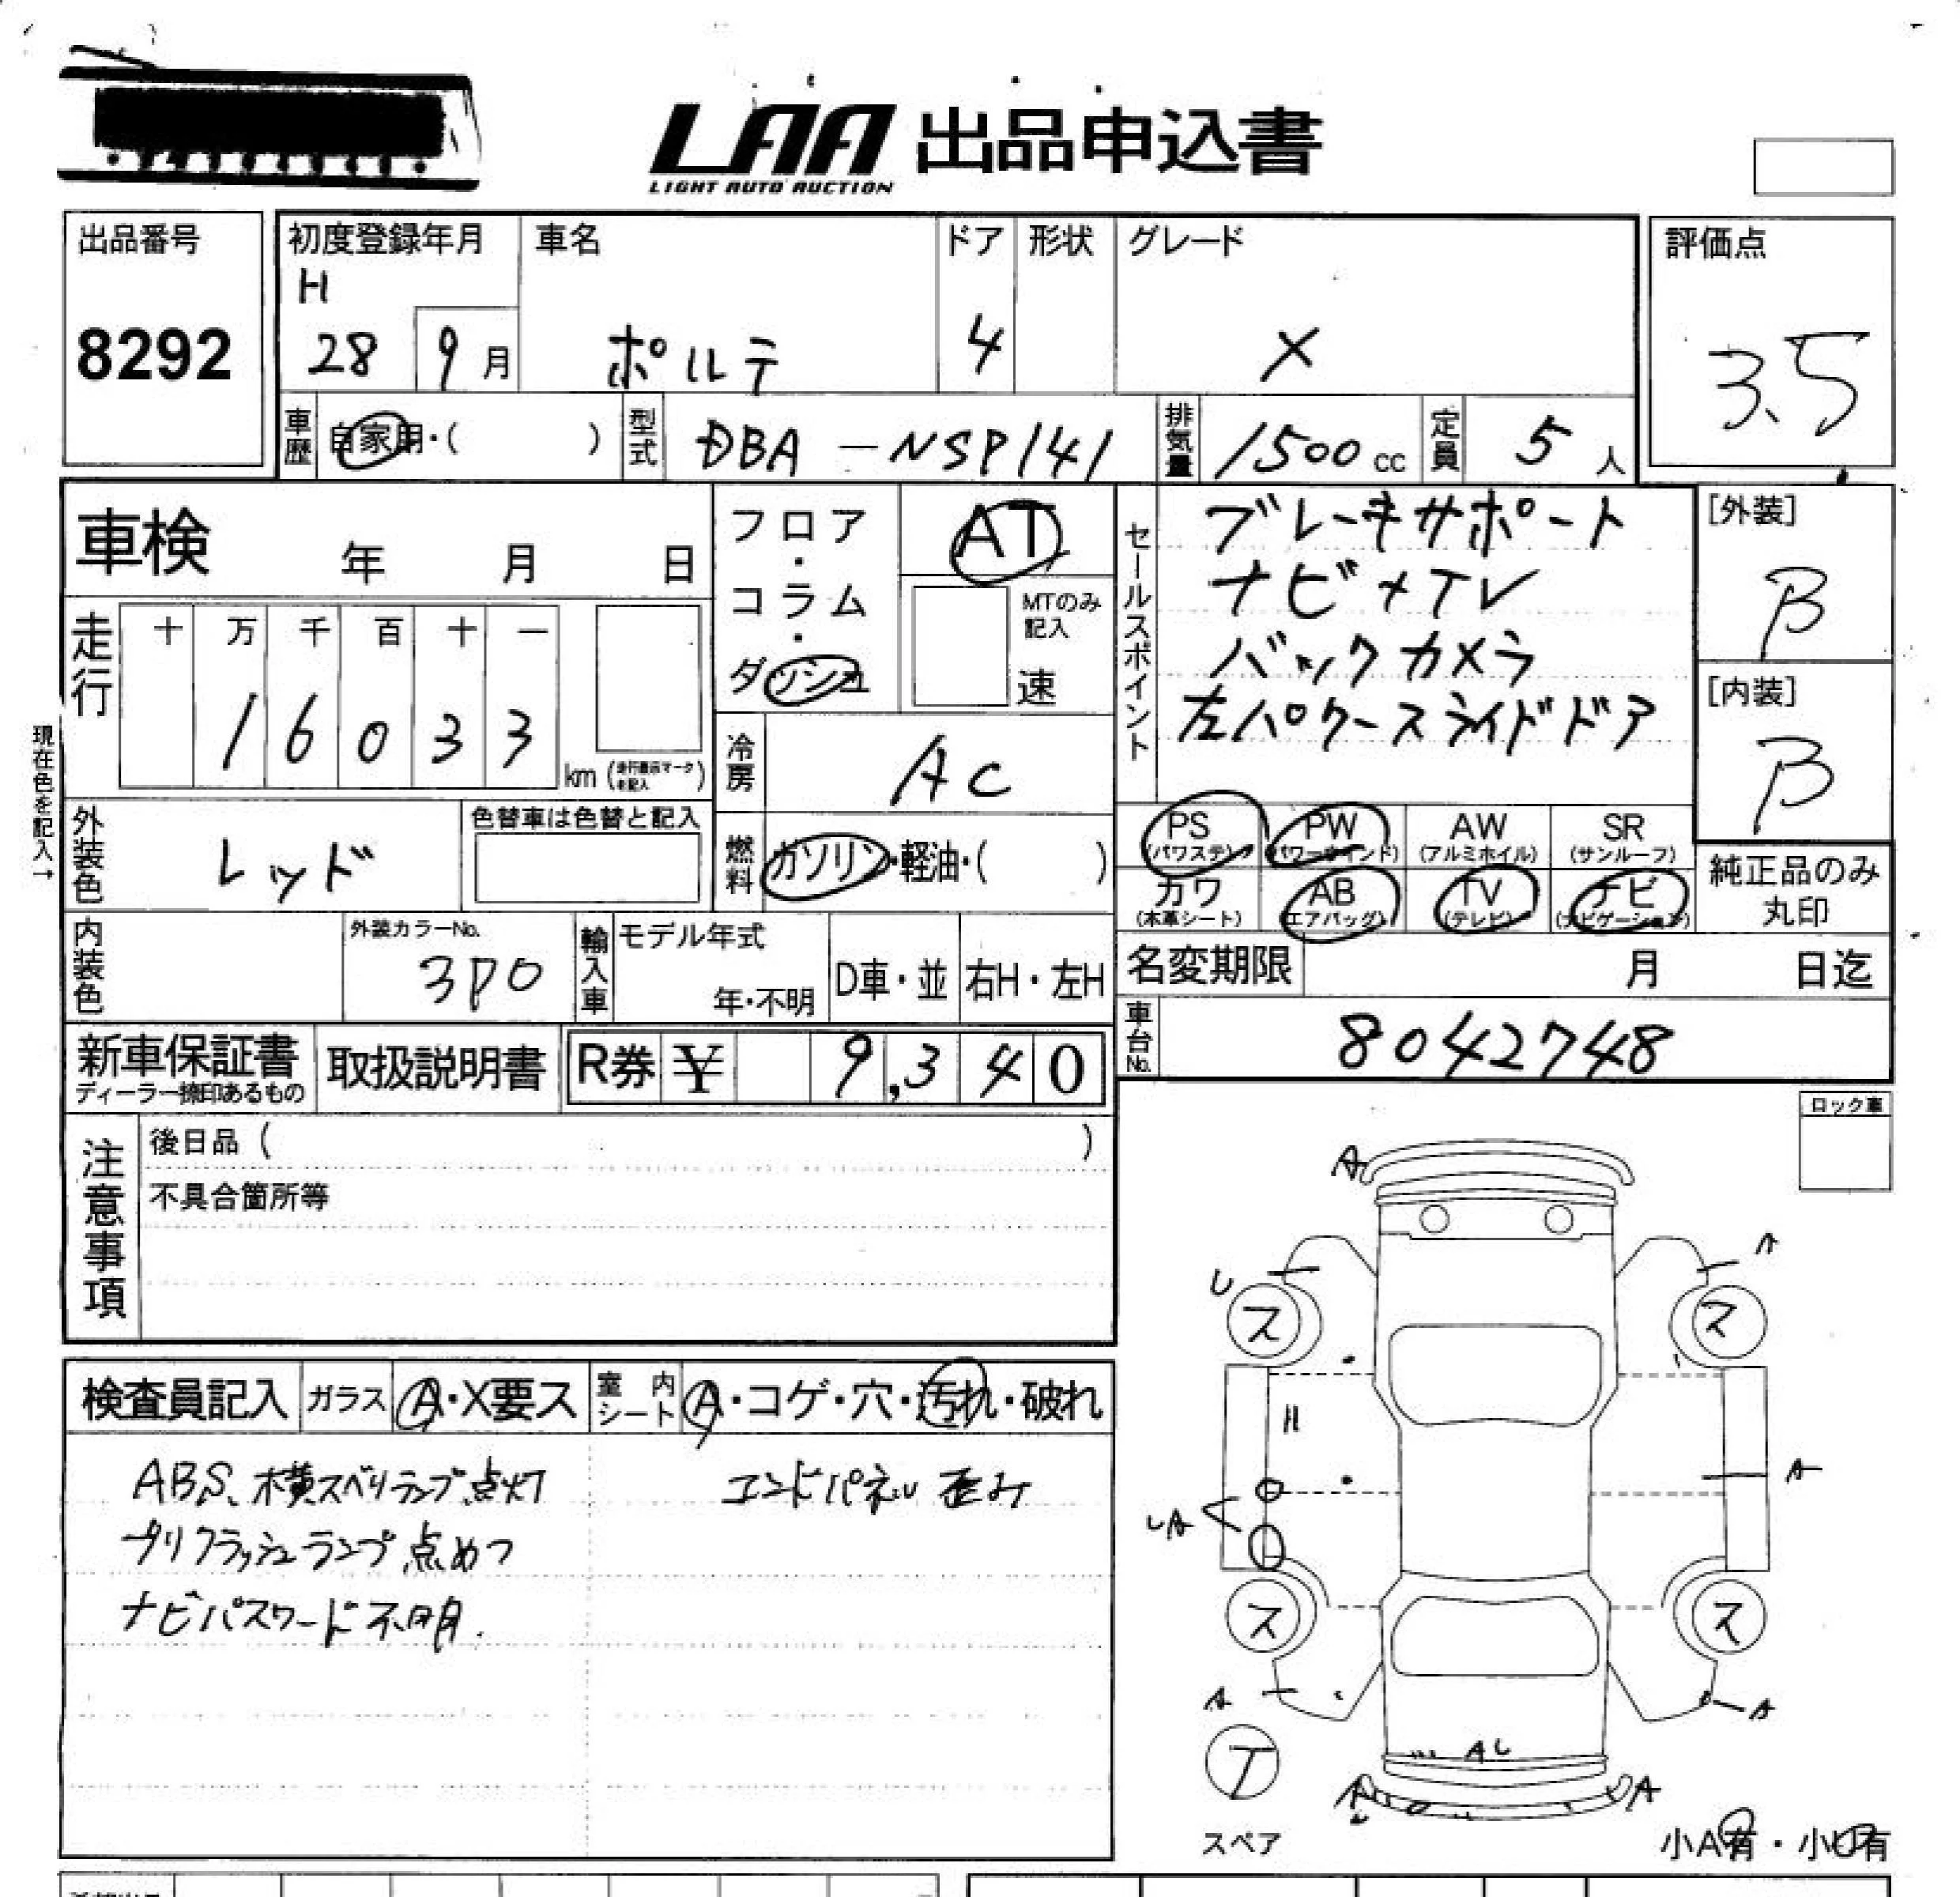 LAA 出品申込書
LIGHT AUTO AUCTION
出品番号
8292
初度登録年月
H
28 9月
車名
ポルテ
ドア
4
形状
グレード
X
評価点
3.5
車歴 自家用・( )
型式 DBA-NSP141
排気量 1500 cc
定員 5 人
車検 年 月 日
フロア・コラム・ダッシュ
AT
MTのみ記入
速
セールスポイント
ブレーキサポート
ナビ+TV
バックカメラ
左パワースライドドア
[外装]
B
[内装]
B
現在色を記入→
走行
十 万 千 百 十 一
1 6 0 3 3
km
冷房 AC
外装色 レッド
色替車は色替と記入
燃料 ガソリン・軽油・( )
PS (パワステ) PW (パワーウインド) AW (アルミホイル) SR (サンルーフ)
カワ (本革シート) AB (エアバッグ) TV (テレビ) ナビ (ナビゲーション)
純正品のみ
丸印
内装色
外装カラーNo.
3P0
輸入車
モデル年式
年・不明
D車・並
右H・左H
名変期限 月 日迄
車台No. 8042748
新車保証書
ディーラー捺印あるもの
取扱説明書
R券 ¥ 9,340
ロック車
注意事項
後日品 ( )
不具合箇所等
検査員記入 ガラス A・X要ス 室内シート A・コゲ・穴・汚れ・破れ
ABS、横スベリランプ点灯 エンドパネル歪み
プリクラッシュランプ点めつ
ナビパスワード不明.
A
A
U
ス ス
A
UA
ス ス
A A
AU
T
A A
スペア
小A有・小U有